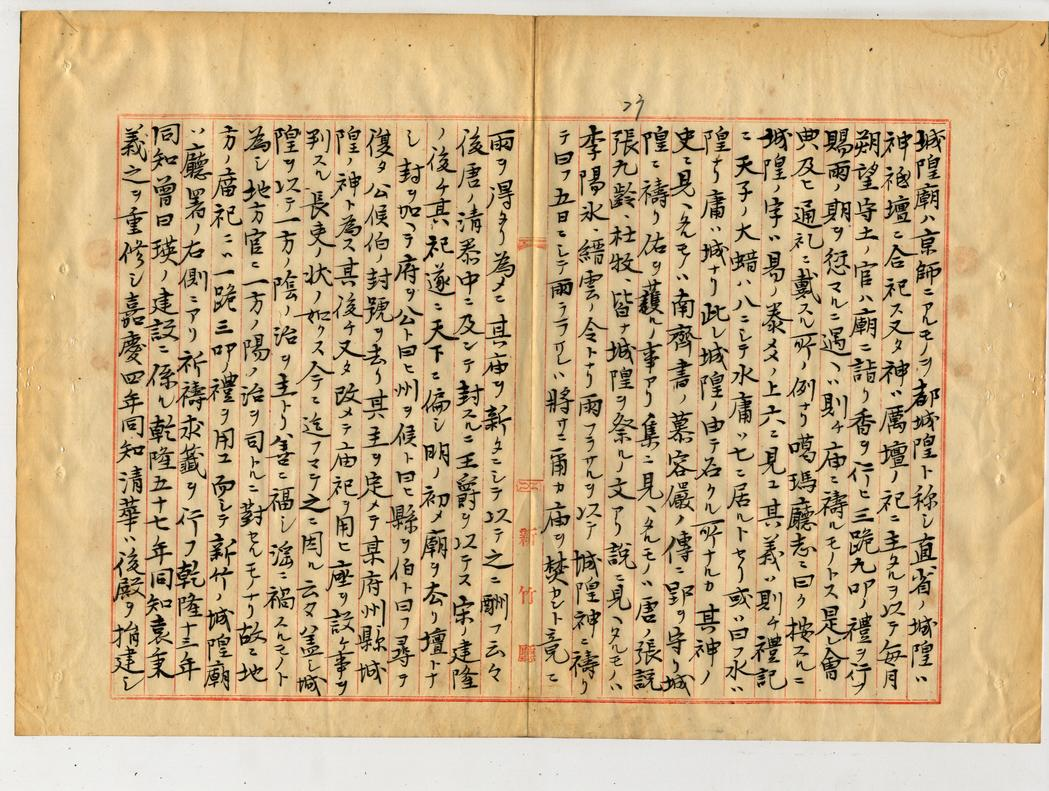 23
城隍廟ハ京師ニアルモノヲ都城隍ト称シ直省ノ城隍ハ
神祗壇ニ合祀ス又タ神ハ厲壇ノ祀ニ主タルヲ以テ每月
朔望守土官ハ廟ニ詣リ香ヲ行ヒ三跪九叩ノ禮ヲ行フ
賜雨ノ期ヲ愆マルニ遇ヘハ則チ庙ニ禱ルモノトス是レ會
典及ヒ通礼ニ載スル所ノ例ナリ噶瑪廳志ニ曰ク按スルニ
城隍ノ字ハ易ノ泰爻ノ上六ニ見エ其義ハ則チ禮記
ニ天子ノ大蜡ハ八ニシテ水庸ハ七ニ居ルトセリ或ハ曰フ水ハ
隍ナリ庸ハ城ナリ此レ城隍ノ由テ名クル所ナルカ其神ノ
史ニ見ヘタルモノハ南齊書ノ慕容儼ノ傳ニ郢ヲ守リ城
隍ニ禱リ佑ヲ護ルノ事アリ集ニ見ヘタルモノハ唐ノ張説
張九齡、杜牧皆ナ城隍ヲ祭ルノ文アリ説ニ見ヘタルモノハ
李陽氷、縉雲ノ令トナリ雨フラサルヲ以テ城隍神ニ禱リ
テ曰フ五日ニシテ雨フラサレハ將サニ爾カ庙ヲ焚カント竟ニ
新竹廳
雨ヲ得タリ為メニ其庙ヲ新タニシテ以テ之ニ酬フ云々
後唐ノ清泰中ニ及ンテ封スルニ王爵ヲ以テス宋ノ建隆
ノ後チ其祀遂ニ天下ニ偏シ明ノ初メ廟ヲ去リ壇トナ
シ封ヲ加ヘテ府ヲ公ト曰ヒ州ヲ候ト曰ヒ縣ヲ伯ト曰フ尋テ
復タ公候伯ノ封號ヲ去リ其主ヲ定メテ某府州縣城
隍ノ神ト為ス其後チ又タ改メテ庙祀ヲ用ヒ座ヲ設ケ事ヲ
判スル長吏ノ状ノ如クス今ニ迄フマテ之ニ因ル云々盖シ城
隍ヲ以テ一方ノ陰ノ治ヲ主トリ善ニ福シ淫ニ禍スルモノト
為シ地方官ニ一方ノ陽ノ治ヲ司トルニ對セルモノナリ故ニ地
方ノ庙祀ニハ一跪三叩禮ヲ用ユ而シテ新竹ノ城隍廟
ハ廳署ノ右側ニアリ祈禱求籤ヲ行フ乾隆十三年
同知曾曰瑛ノ建設ニ係ル乾隆五十七年同知袁秉
義之ヲ重修シ嘉慶四年同知清華ハ後殿ヲ捐建シ